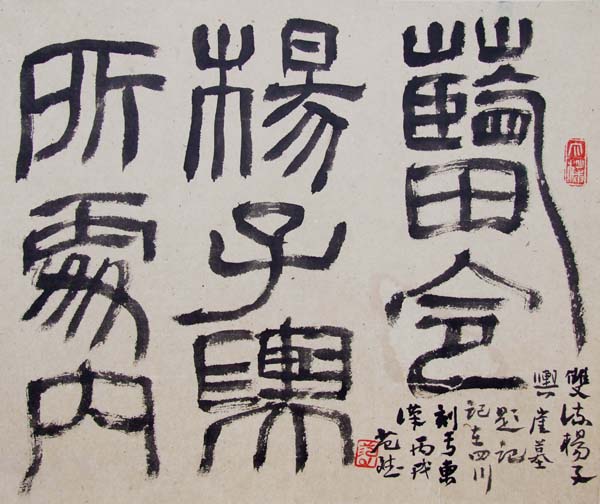 藍田令
楊子輿
所處内
雙流楊子
輿崖墓
題記
記在四川
刻于東
漢丙戌
范